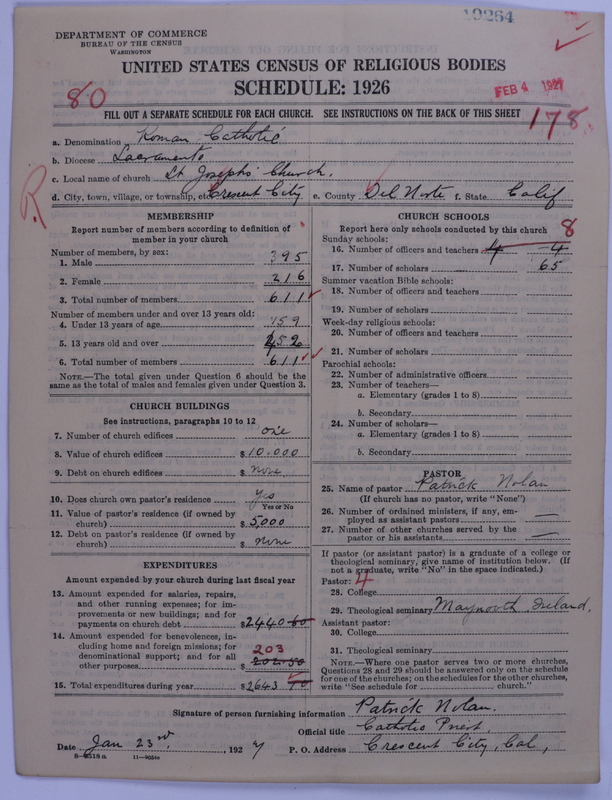 19264
DEPARTMENT OF COMMERCE
BUREAU OF THE CENSUS
WASHINGTON
UNITED STATES CENSUS OF RELIGIOUS BODIES
SCHEDULE: 1926
FEB 4 1927
80
FILL OUT A SEPARATE SCHEDULE FOR EACH CHURCH. SEE INSTRUCTIONS ON THE BACK OF THIS SHEET
178
a. Denomination Roman Catholic
b. Diocese Sacramento
c. Local name of church St Josephs' Church.
d. City, town, village, or township, etc. Crescent City e. County Del Norte f. State Calif
R
MEMBERSHIP
Report number of members according to definition of member in your church
Number of members, by sex:
1. Male 395
2. Female 216
3. Total number of members 611
Number of members under and over 13 years old:
4. Under 13 years of age 159
5. 13 years old and over 452
6. Total number of members 611
NOTE.—The total given under Question 6 should be the
same as the total of males and females given under Question 3.
CHURCH BUILDINGS
See instructions, paragraphs 10 to 12
7. Number of church edifices one
8. Value of church edifices $10.000
9. Debt on church edifices $ none
10. Does church own pastor's residence yes
Yes or No
11. Value of pastor's residence (if owned by
church) $5,000
12. Debt on pastor's residence (if owned by
church) $ none
EXPENDITURES
Amount expended by your church during last fiscal year
13. Amount expended for salaries, repairs,
and other running expenses; for im-
provements or new buildings; and for
payments on church debt $2440 60
14. Amount expended for benevolences, in-
cluding home and foreign missions; for
denominational support; and for all
other purposes 203
$ 202.50
15. Total expenditures during year $2643 10
CHURCH SCHOOLS
Report here only schools conducted by this church
8
Sunday schools:
16. Number of officers and teachers 4 4
17. Number of scholars 65
Summer vacation Bible schools:
18. Number of officers and teachers
19. Number of scholars
Week-day religious schools:
20. Number of officers and teachers
21. Number of scholars
Parochial schools:
22. Number of administrative officers
23. Number of teachers—
a. Elementary (grades 1 to 8)
b. Secondary
24. Number of scholars—
a. Elementary (grades 1 to 8)
b. Secondary
PASTOR
25. Name of pastor Patrick Nolan
(If church has no pastor, write "None")
26. Number of ordained ministers, if any, em-
ployed as assistant pastors —
27. Number of other churches served by the
pastor or his assistants —
If pastor (or assistant pastor) is a graduate of a college or
theological seminary, give name of institution below. (If
not a graduate, write "No" in the space indicated.)
Pastor: 4
28. College
29. Theological seminary Maynooth, Ireland,
Assistant pastor:
30. College
31. Theological seminary
NOTE.—Where one pastor serves two or more churches,
Questions 28 and 29 should be answered only on the schedule
for one of the churches; on the schedules for the other churches,
write "See schedule for church."
Signature of person furnishing information Patrick Nolan.
Official title Catholic Priest.
Date Jan 23rd, 1927 P. O. Address Crescent City, Cal,
8—9518a 11—9954